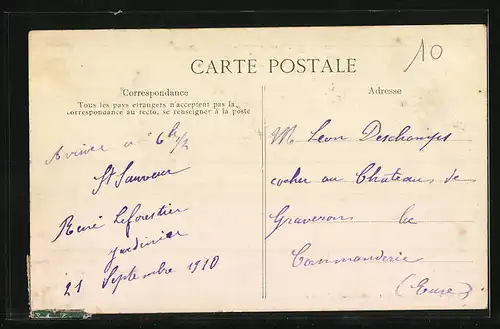 10
CARTE POSTALE
Correspondance
Tous les pays étrangers n'acceptent pas la
correspondance au recto, se renseigner à la poste
Adresse
Arriver à 6h 1/2
St Sauveur
René Leforestier
jardinier
21 Septembre 1910
M Leon Deschamps
cocher au Chateau de
Graveron la
Commanderie
(Eure)